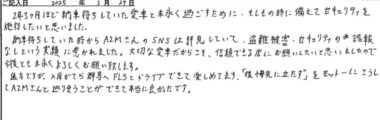 ご記入日 2025年3月27日
2年3ヶ月ほど納車待ちしていた愛車と末永く過ごすために、もしもの時に備えてセキュリティを
施行したいと思いました。
納車待ちしていた時からA2MさんのSNSは拝見していて、盗難被害・セキュリティの誤報
なしという実績に惹かれました。大切な愛車だからこそ、信頼できる店にお願いしたいと思いましたので
今後とも末永くよろしくお願い致します。
遠方ですが、入庫がてら群馬へFL5とドライブできて楽しめてます。"後悔先に立たず"をモットーにこうし
てA2Mさんと巡り会うことができて本当に良かったです。